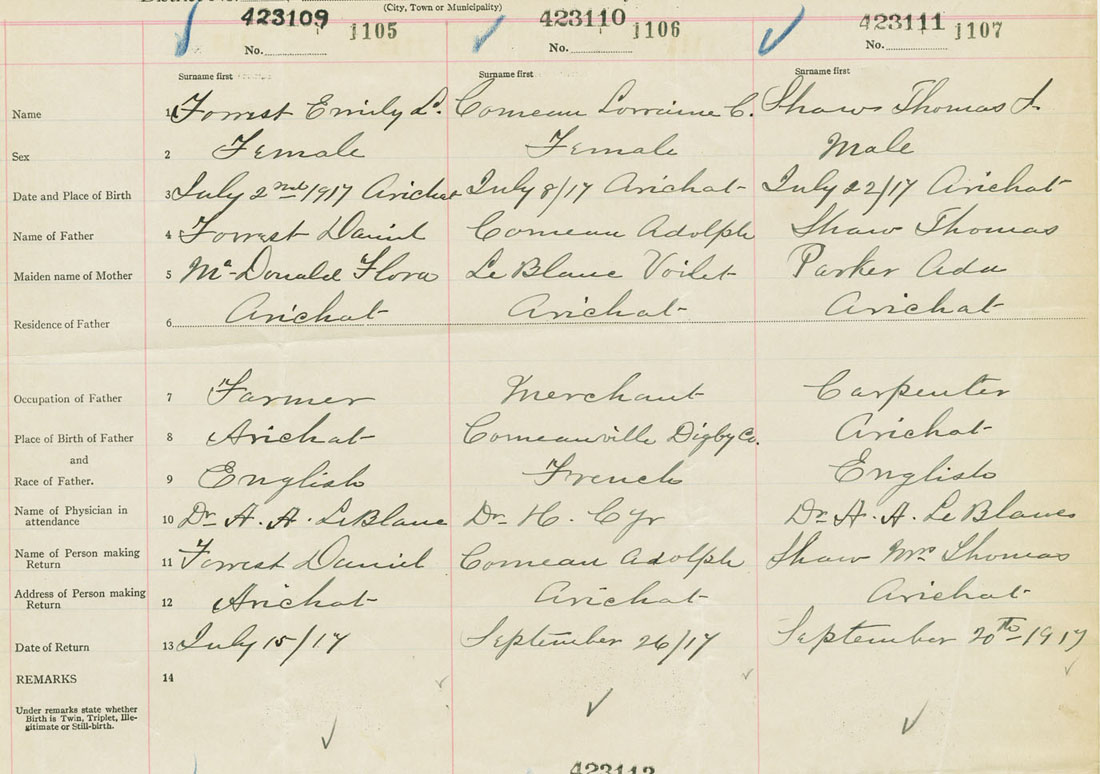 (City, Town or Municipality)
423109 1105 423110 1106 423111 1107
No. No. No.
Surname first Surname first Surname first
Name 1 Forrest Emily L. Comeau Lorraine C. Shaw Thomas J.
Sex 2 Female Female Male
Date and Place of Birth 3 July 2nd 1917 Arichat July 8/17 Arichat July 22/17 Arichat
Name of Father 4 Forrest Daniel Comeau Adolph Shaw Thomas
Maiden name of Mother 5 Mc Donald Flora Le Blanc Voilet Parker Ada
Residence of Father 6 Arichat Arichat Arichat
Occupation of Father 7 Farmer Merchant Carpenter
Place of Birth of Father 8 Arichat Comeauville Digby Co. Arichat
and
Race of Father. 9 English French English
Name of Physician in attendance 10 Dr A. A. LeBlanc Dr H. Cyr Dr A. A. Le Blanc
Name of Person making Return 11 Forrest Daniel Comeau Adolph Shaw Mrs Thomas
Address of Person making Return 12 Arichat Arichat Arichat
Date of Return 13 July 15/17 September 26/17 September 20th 1917
REMARKS 14
Under remarks state whether
Birth is Twin, Triplet, Ille-
gitimate or Still-birth.